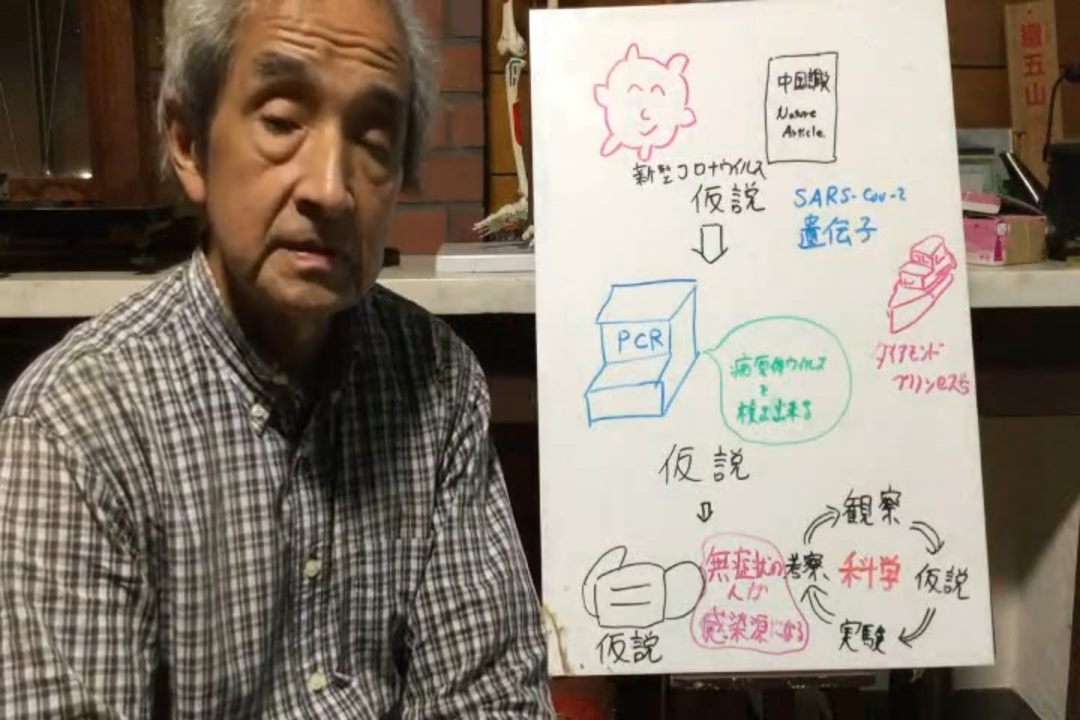 中国論文
Nature
Article
新型コロナウイルス
仮説
SARS-Cov-2
遺伝子
PCR
病原体ウイルス
を
検出出来る
ダイアモンド
プリンセス号
仮説
仮説
無症状の
人が
感染源になる
科学
観察
仮説
実験
考察
五山